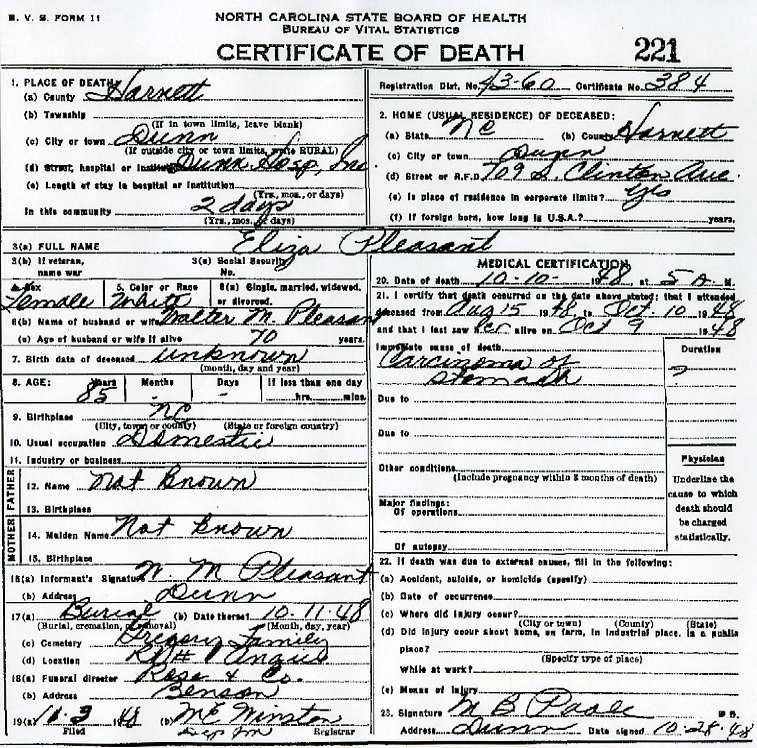 N. V. S. FORM 11
NORTH CAROLINA STATE BOARD OF HEALTH
BUREAU OF VITAL STATISTICS
CERTIFICATE OF DEATH
221
1. PLACE OF DEATH:
(a) County Harnett
(b) Township
(If in town limits, leave blank)
(c) City or town Dunn
(If outside city or town limits, write RURAL)
(d) Street, hospital or institution Dunn Hosp, Inc
(e) Length of stay in hospital or institution
(Yrs., mos., or days)
In this community 2 days
(Yrs., mos. or days)
Registration Dist. No. 43-60 Certificate No. 384
2. HOME (USUAL RESIDENCE) OF DECEASED:
(a) State NC (b) County Harnett
(c) City or town Dunn
(d) Street or R.F.D. 709 S. Clinton Ave.
(e) Is place of residence in corporate limits? yes
(f) If foreign born, how long in U.S.A.? years.
3(a) FULL NAME Eliza Pleasant
3(b) If veteran, name war
3(c) Social Security No.
4. Sex Female
5. Color or Race White
6(a) Single, married, widowed, or divorced.
6(b) Name of husband or wife Walter M. Pleasant
(c) Age of husband or wife if alive 70 years.
7. Birth date of deceased unknown
(month, day and year)
8. AGE: Years Months Days If less than one day
85 - - hrs. mins.
9. Birthplace NC
(City, town or county) (State or foreign country)
10. Usual occupation Domestic
11. Industry or business
FATHER
12. Name Not Known
13. Birthplace
MOTHER
14. Maiden Name Not Known
15. Birthplace
16(a) Informant's Signature W. M Pleasant
(b) Address Dunn
17(a) Burial (b) Date thereof 10-11-48
(Burial, cremation, or removal) (Month, day, year)
(c) Cemetery Gregory Family
(d) Location Angier
18(a) Funeral director Rose & Co.
(b) Address Benson
19(a) 11-3 1948 (b) Winston
Filed Registrar
MEDICAL CERTIFICATION
20. Date of death 10-10- 1948 at 5 A. M.
21. I certify that death occurred on the date above stated; that I attended
deceased from Aug 15 1948 to Oct. 10 1948
and that I last saw her alive on Oct 9 1948
Immediate cause of death
Carcinoma of
stomach
Duration
?
Due to
Due to
Other conditions
(Include pregnancy within 3 months of death)
Major findings:
Of operations
Of autopsy
Physician
Underline the
cause to which
death should
be charged
statistically.
22. If death was due to external causes, fill in the following:
(a) Accident, suicide, or homicide (specify)
(b) Date of occurrence
(c) Where did injury occur?
(City or town) (County) (State)
(d) Did injury occur about home, on farm, in industrial place, in a public
place?
(Specify type of place)
While at work?
(e) Means of injury
23. Signature M B Poole M D.
Address Dunn Date signed 10-28-48